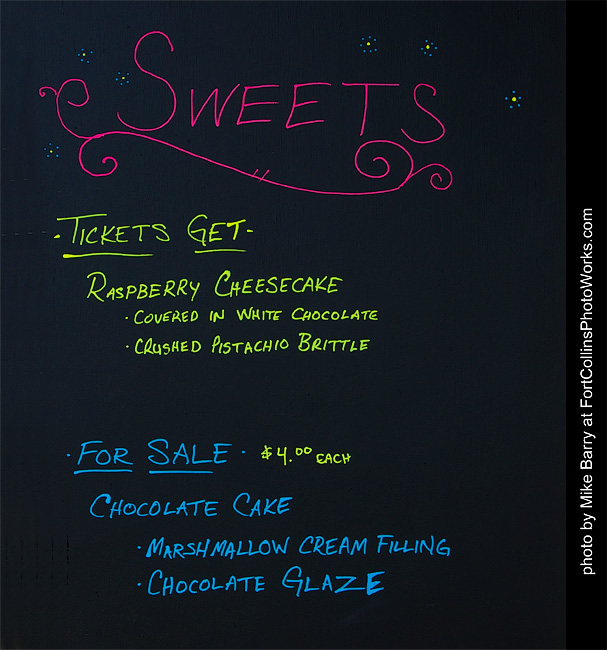 SWEETS
·TICKETS GET·
RASPBERRY CHEESECAKE
· COVERED IN WHITE CHOCOLATE
· CRUSHED PISTACHIO BRITTLE
· FOR SALE · $4.00 EACH
CHOCOLATE CAKE
· MARSHMALLOW CREAM FILLING
· CHOCOLATE GLAZE
photo by Mike Barry at FortCollinsPhotoWorks.com